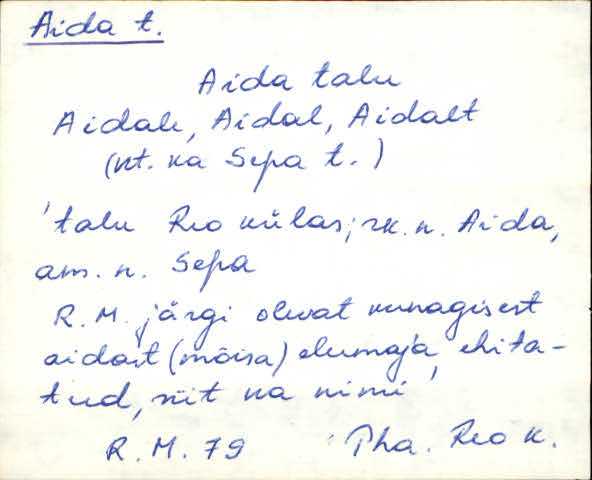 Aida t.
Aida talu
Aidale, Aidal, Aidalt
(vt. ka Sepa t.)
'talu Reo külas; rk. n. Aida,
am. n. Sepa
R. M. järgi olevat kunagisest
aidast (mõisa) elumaja ehita-
tud, siit ka nimi'
R. M. 79 Pha. Reo k.